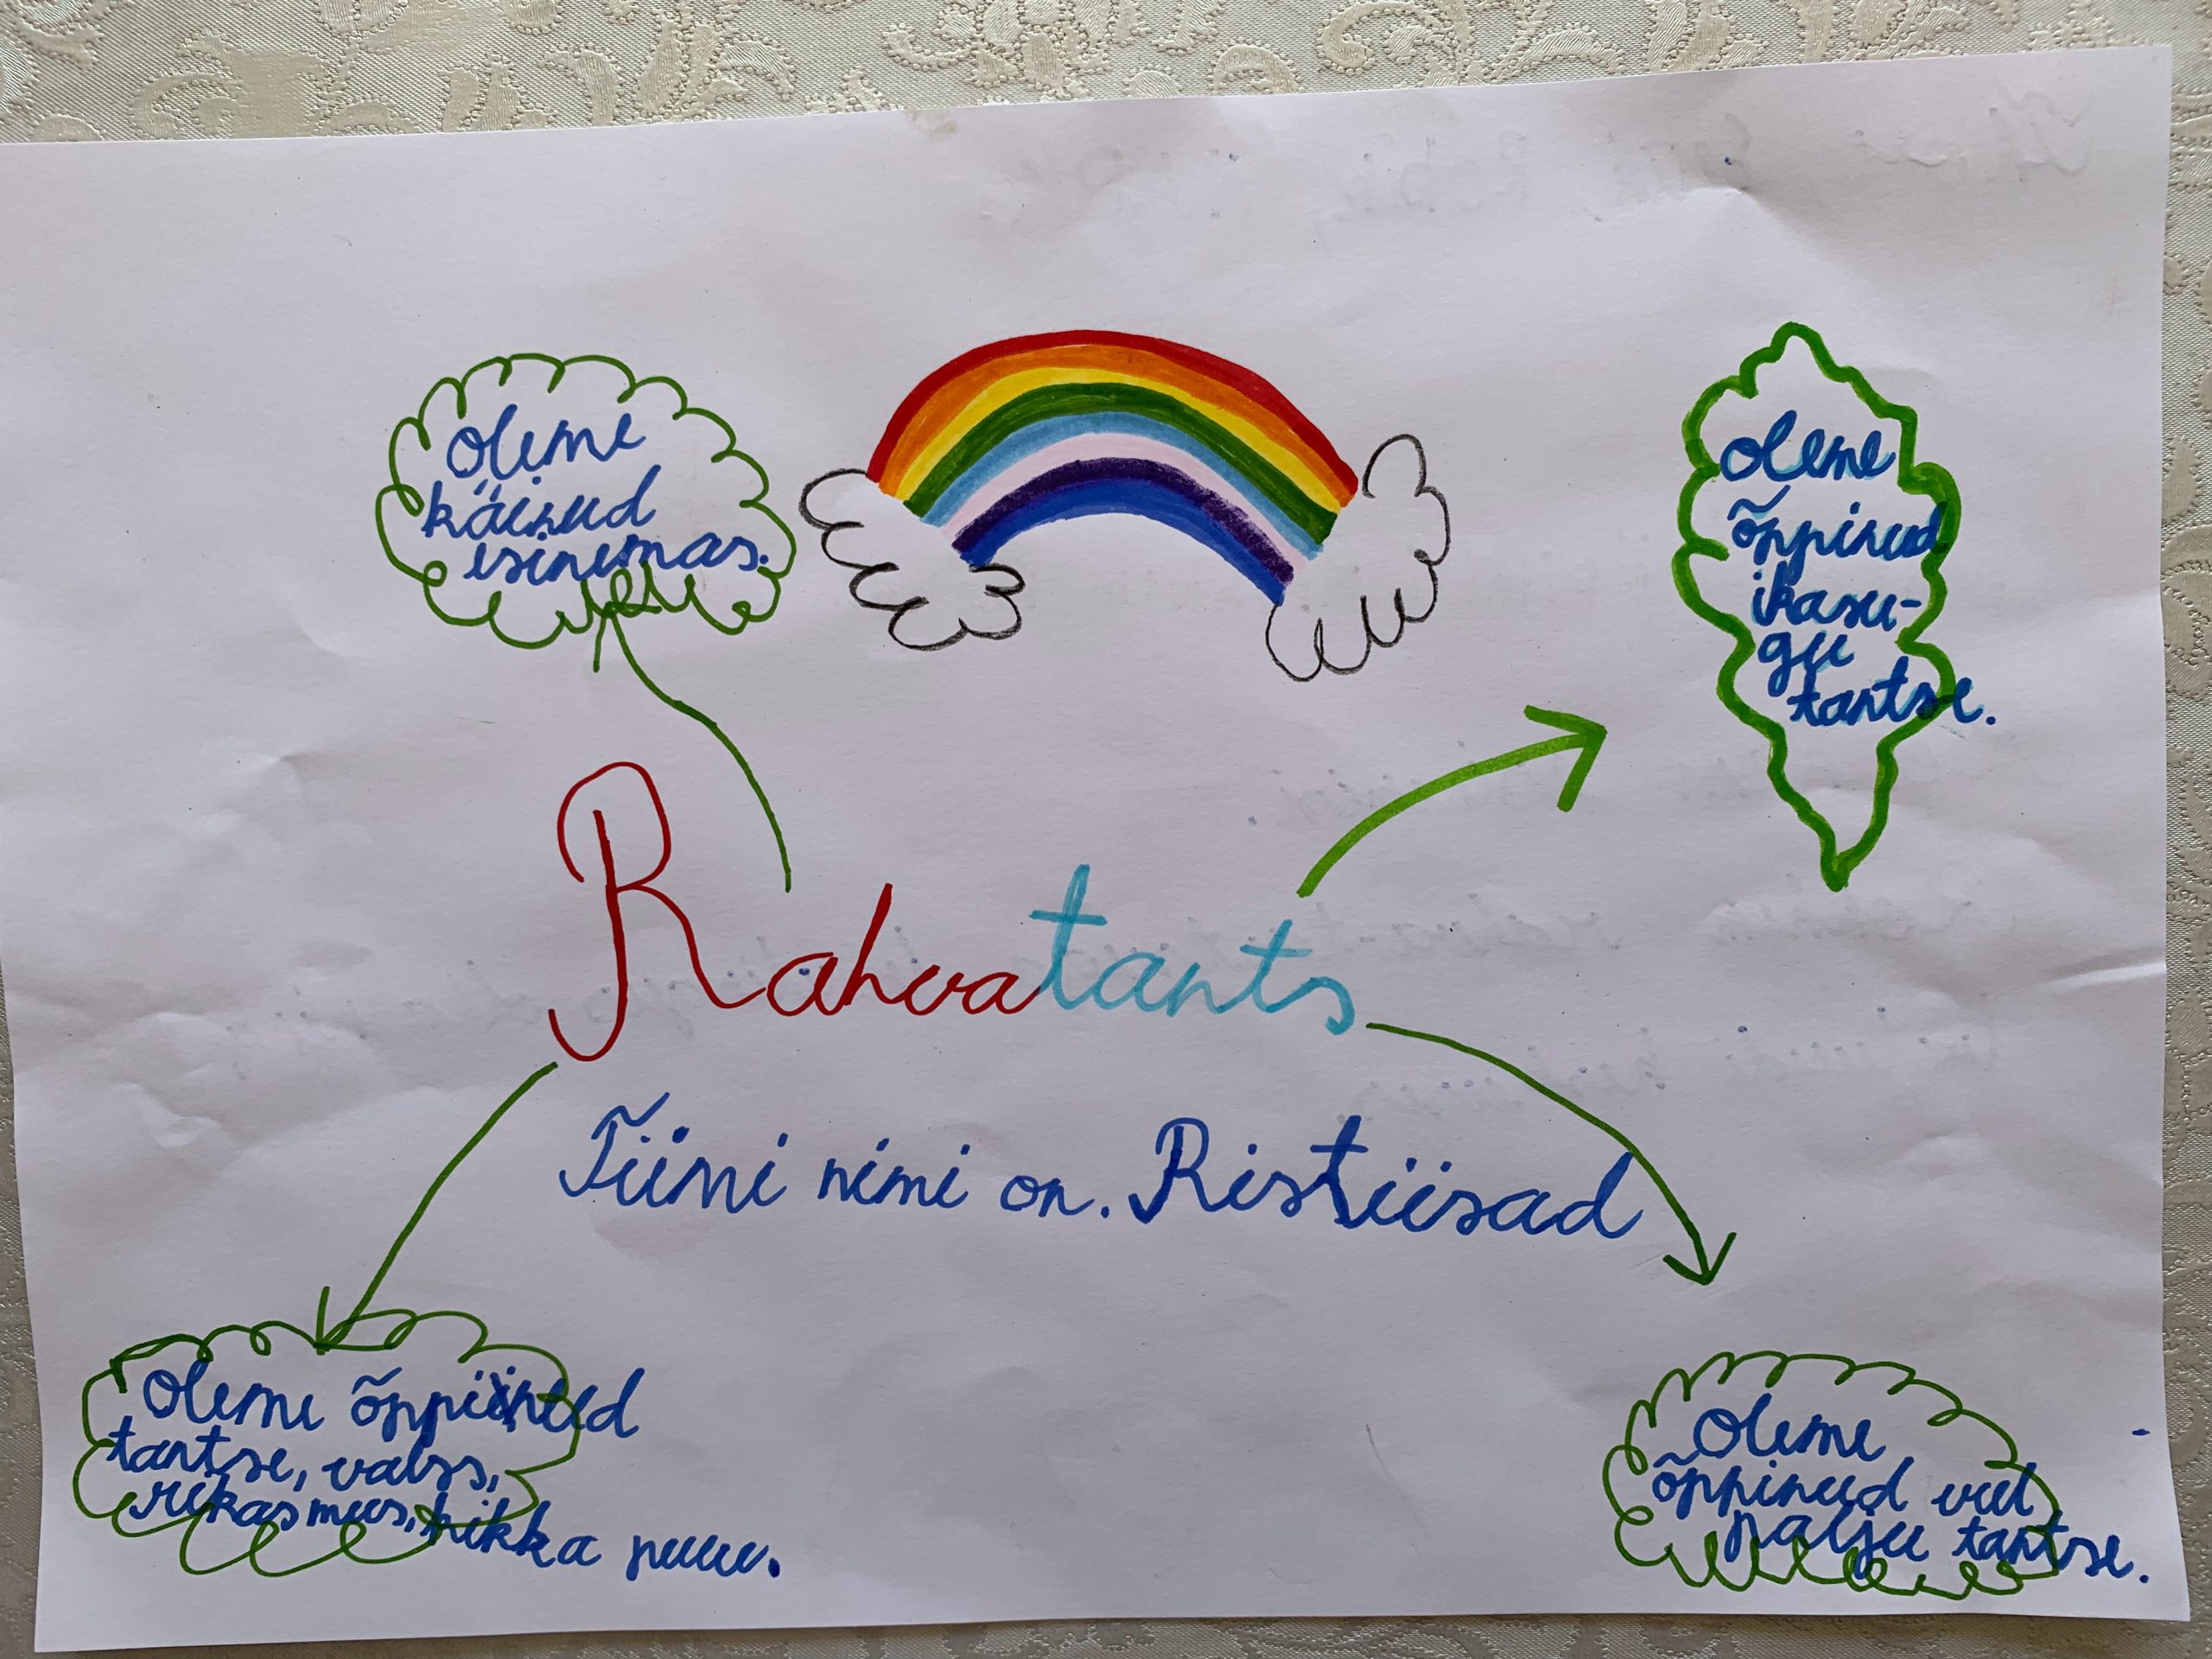 oleme
käinud
esinemas.
oleme
õppinud
ikasu-
gu
tantse.
Rahvatants
Tiimi nimi on. Ristiisad
Oleme õppinud
tantse, valss,
rikas mees, kikka puuu.
Oleme
õppinud veel
palju tantse.